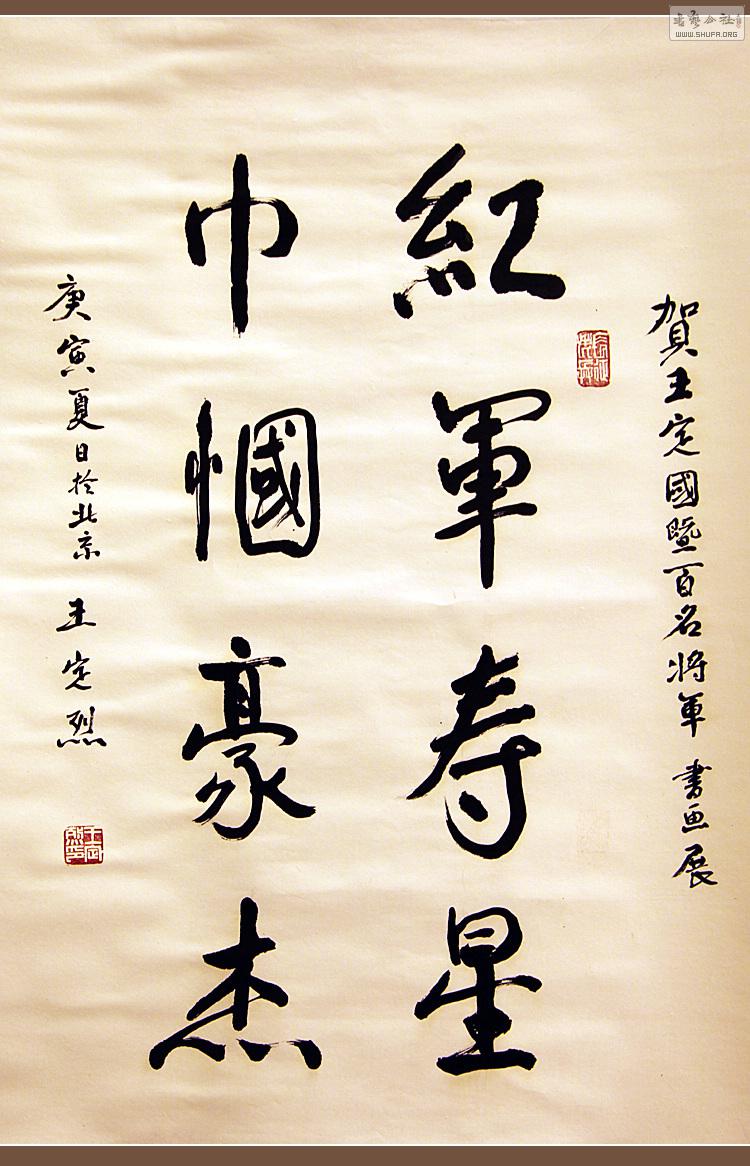 賀王定國暨百名将軍書画展
紅軍寿星
巾幗豪杰
庚寅夏日於北京 王定烈
书艺公社
WWW.SHUFA.ORG